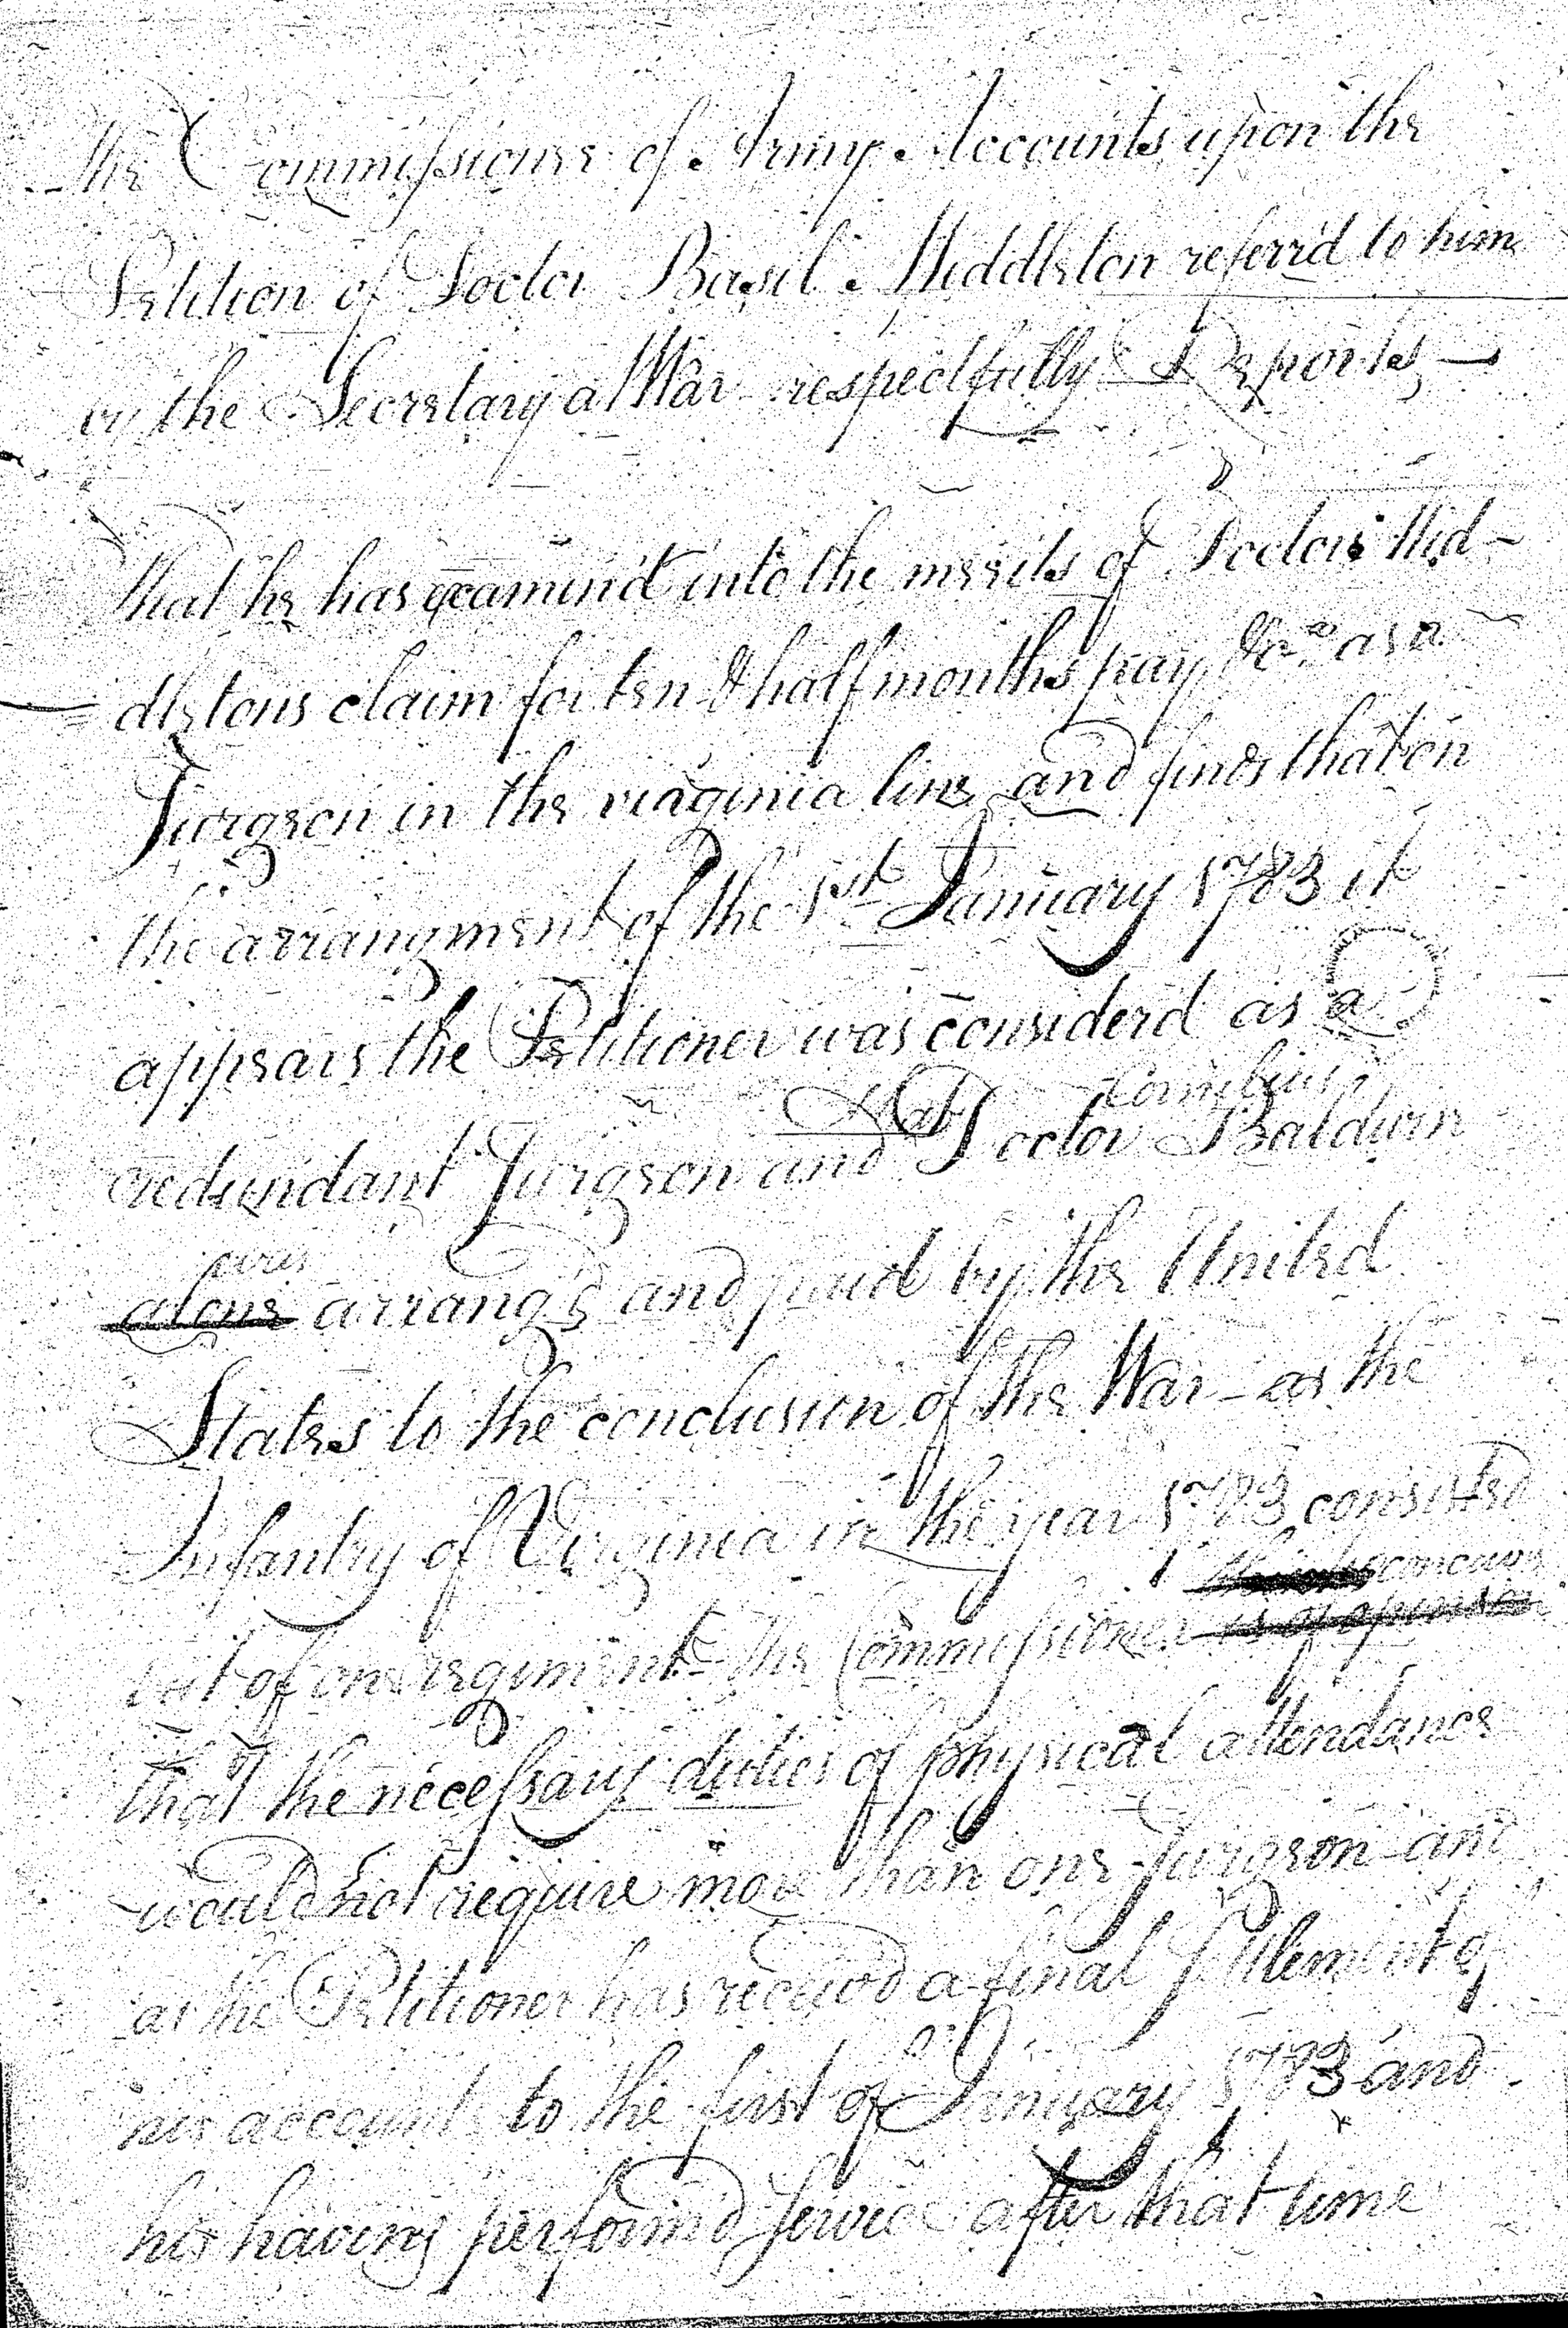 The Commissioner of Army Accounts upon the
Petition of Doctor Basil Middleton referr'd to him
by the Secretary at War respectfully Reports,—
That he has examin'd into the merits of Doctor Mid-
dletons claim for ten & half months pay &ca as a
Surgeon in the virginia line and finds that on
the arrangment of the 1st January 1783 it
appears the Petitioner was considerd as a
Cornelius
redundant Surgeon and that Doctor Baldwin
was
alone arrang'd and paid by the United
States to the conclusion of the War – as the
Infantry of Virginia in the year 1783 consisted
concieves
but of one regiment the Commissioner is of opinion
that the necessary duties of physical attendance
would not require more than one Surgeon and
as the Petitioner has reciev'd a final Settlement of
his accounts to the first of January 1783 and
his having perform'd service after that time